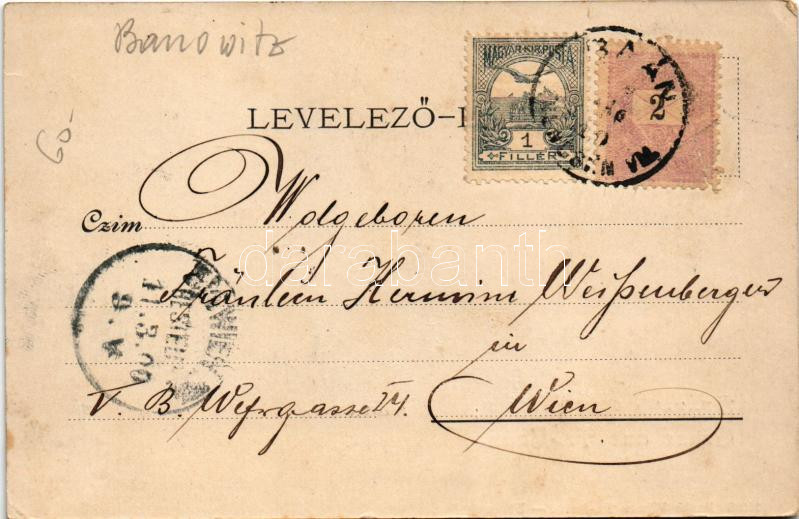 Banowitz
60
MAGYAR·KIR·POSTA
1
FILLÉR
2
BAÁN
LEVELEZŐ-
Czim
Wolgeboren
Fräulein Hermine Weißenberger
in
V. B. Wehrgasse
Wien
WIEN
BESTELLT
11.3.00
9. V
darabanth